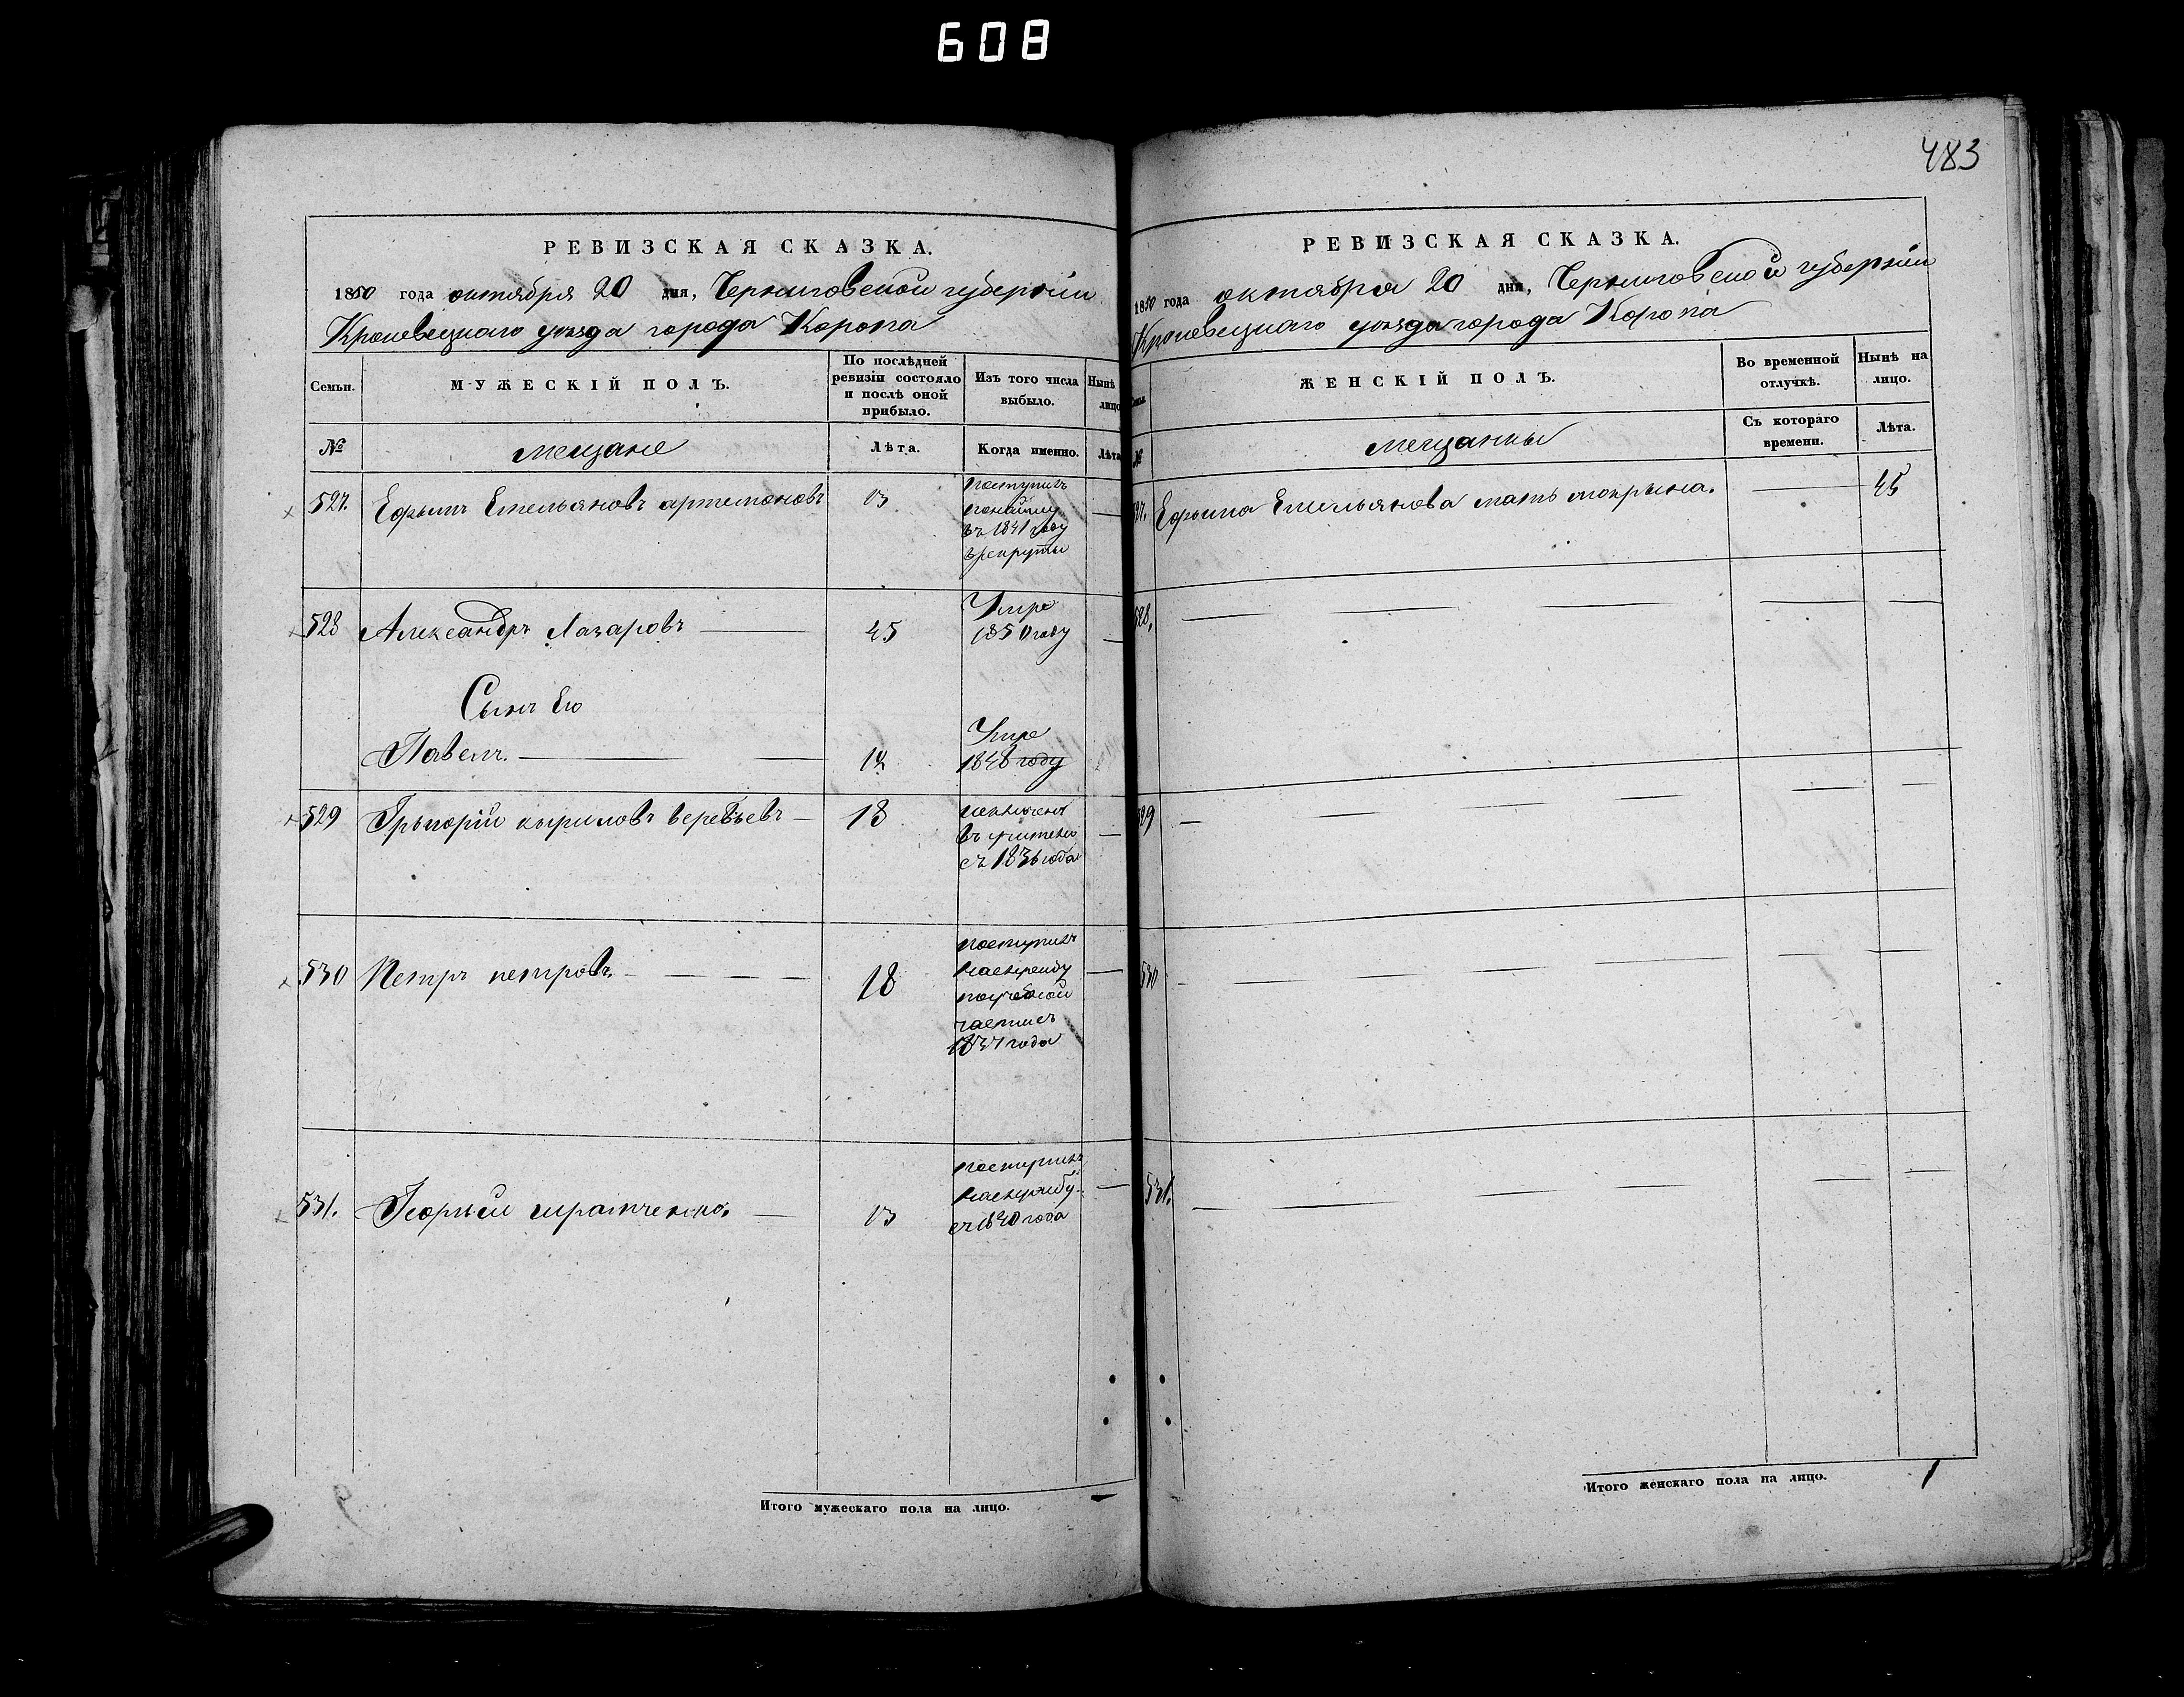 608
483
РЕВИЗСКАЯ СКАЗКА.
1850 года октября 20 дня, Черниговской губерніи
Кролевецкаго уезда города Коропа
Семьи.
МУЖЕСКІЙ ПОЛЪ.
По послѣдней ревизіи состояло и послѣ оной прибыло.
Изъ того числа выбыло.
Нынѣ лицо
№
мещане
Лѣта.
Когда именно.
Лѣта
527. Ефымъ Емельяновъ артемоновъ 13
поступилъ
въ 1841 году
в рекруты
528 Александръ Лазаровъ 45
Умре
1850 году
Сынъ Его
Павелъ. 14
Умре
1848 году
529 Грыгорій кыриловъ веребьевъ 13
исключенъ
въ
съ 1836 года
530 Петръ петровъ. 18
поступилъ
наслужбу
части съ
1837 года
531. Георгій 13
поступилъ
наслужбу
съ 1840 года
Итого мужескаго пола на лицо. —
РЕВИЗСКАЯ СКАЗКА.
1850 года октября 20 дня, Черниговской губерніи
Кролевецкаго уезда города Коропа
ЖЕНСКІЙ ПОЛЪ.
Во временной отлучкѣ.
Нынѣ на лицо.
№
мещанки
Съ котораго времени.
Лѣта.
527. Ефыма Емельянова мать мокрына. 45
528.
529
530
531.
Итого женскаго пола на лицо. 1